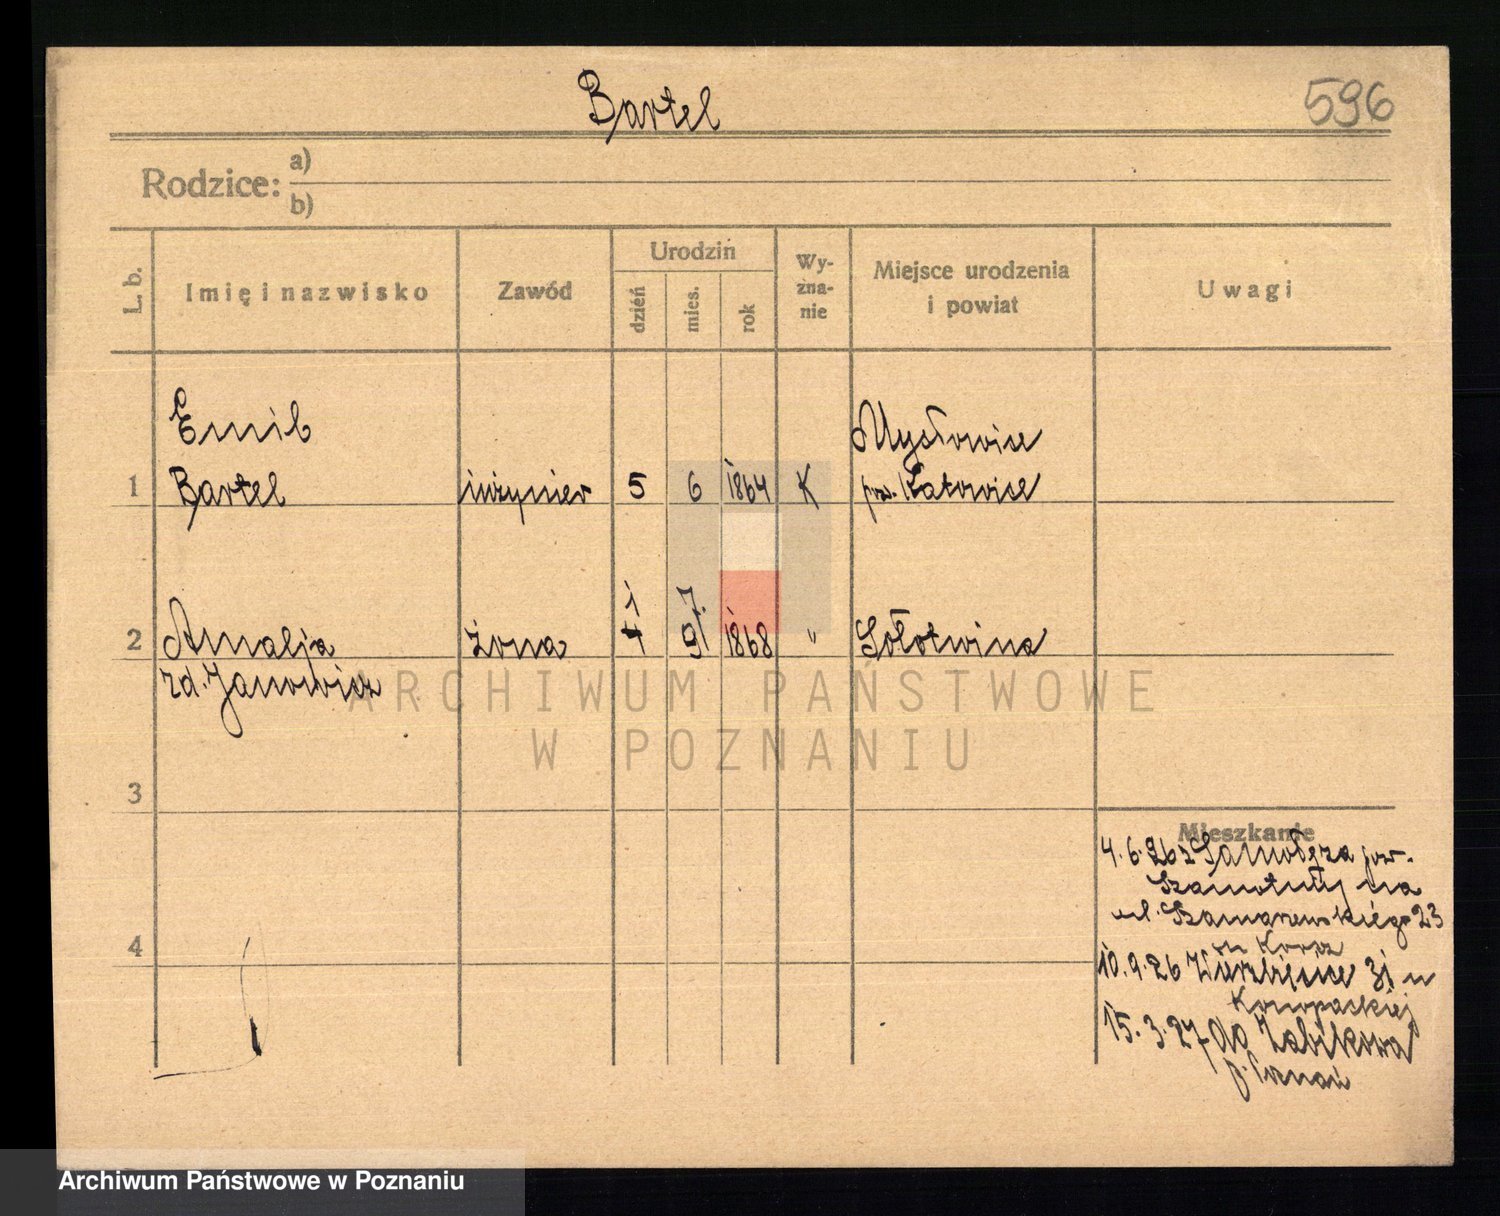 Bartel
596
Rodzice: a)
b)
L. b.
Imię i nazwisko
Zawód
Urodzin
dzień
mies.
rok
Wy-
zna-
nie
Miejsce urodzenia
i powiat
Uwagi
Emil
Mysłowice
1 Bartel inżynier 5 6 1864 K pow. Katowice
1 7.
2 Amalja żona 4 9 1868 " Sołotwina
rd. Janowicz
ARCHIWUM PAŃSTWOWE
W POZNANIU
3
Mieszkanie
4.6.26 z pow.
Szamotuły na
ul. Szamarzewskiego 23
4
10.9.26 Wierzbięcice 31 u
Konopackiej
15.3.27 do Żabikowa
p. Poznań
Archiwum Państwowe w Poznaniu